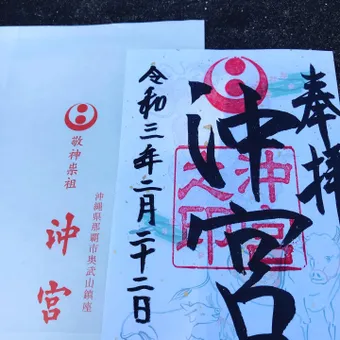 奉拝
沖宮
沖宮
之印
令和三年二月二十二日
沖縄県那覇市奥武山鎮座
敬神崇祖
沖宮